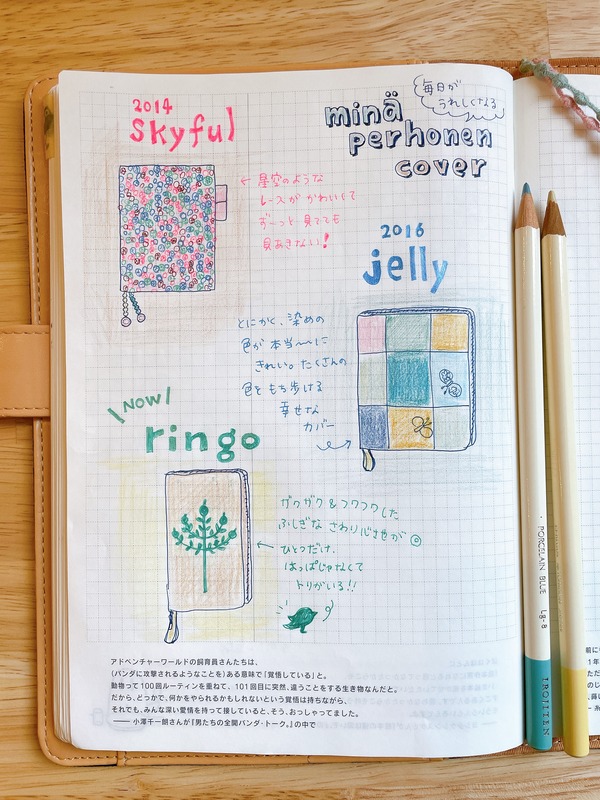 2014
Skyful
minä
perhonen
cover
毎日が
うれしくなる
← 星空のような
レースが かわいくて
ずーっと 見てても
見あきない!
2016
jelly
とにかく、染めの
色が 本当〜〜に
きれい。たくさんの
色を もち歩ける
幸せな
カバー
NOW
ringo
ザクザク & フワフワした
ふしぎな さわり心地が◎
← ひとつだけ、
はっぱじゃなくて
トリがいる!!
アドベンチャーワールドの飼育員さんたちは、
(パンダに攻撃されるようなことを)ある意味で「覚悟している」と。
動物って100回ルーティンを重ねて、101回目に突然、違うことをする生き物なんだと。
だから、どっかで、何かをやられるかもしれないという覚悟は持ちながら、
それでも、みんな深い愛情を持って接していると、そう、おっしゃってました。
—— 小澤千一朗さんが『男たちの全開パンダ・トーク。』の中で
PORCELAIN BLUE Lg-8
IROJITEN